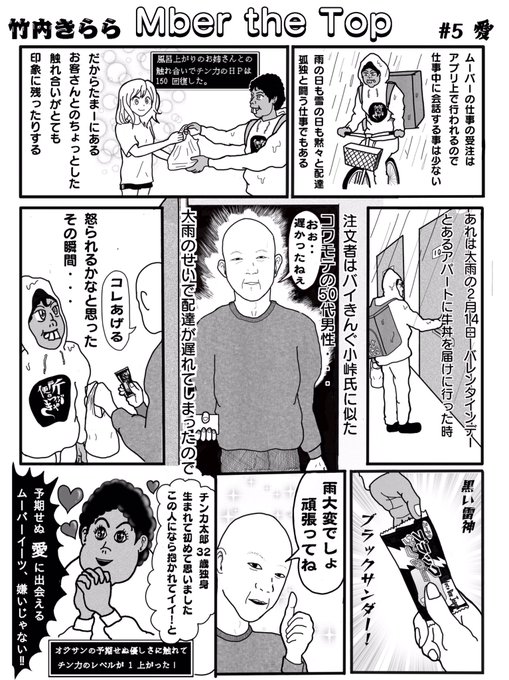 竹内きらら
Mber the Top
#5 愛
ムーバーの仕事の受注は
アプリ上で行われるので
仕事中に会話する事は少ない
雨の日も雪の日も黙々と配達
孤独と闘う仕事でもある
風呂上がりのお姉さんとの
触れ合いでチン力の日Pは
150回復した。
だからたまーにある
お客さんとのちょっとした
触れ合いがとても
印象に残ったりする
あれは大雨の2月14日―バレンタインデー
とあるアパートに牛丼を届けに行った時
注文者はバイきんぐ小峠氏に似た
コワモテの50代男性・・・
おぉ・・
遅かったねぇ
大雨のせいで配達が遅れてしまったので
怒られるかなと思った
その瞬間・・・
コレあげる
黒い雷神
ブラックサンダー!
雨大変でしょ
頑張ってね
チン力太郎32歳独身
生まれて初めて思いました
この人になら抱かれてイイ!と
予期せぬ愛に出会える
ムーバーイーツ、嫌いじゃない!!
オジサンの予期せぬ優しさに触れて
チン力のレベルが1上がった!